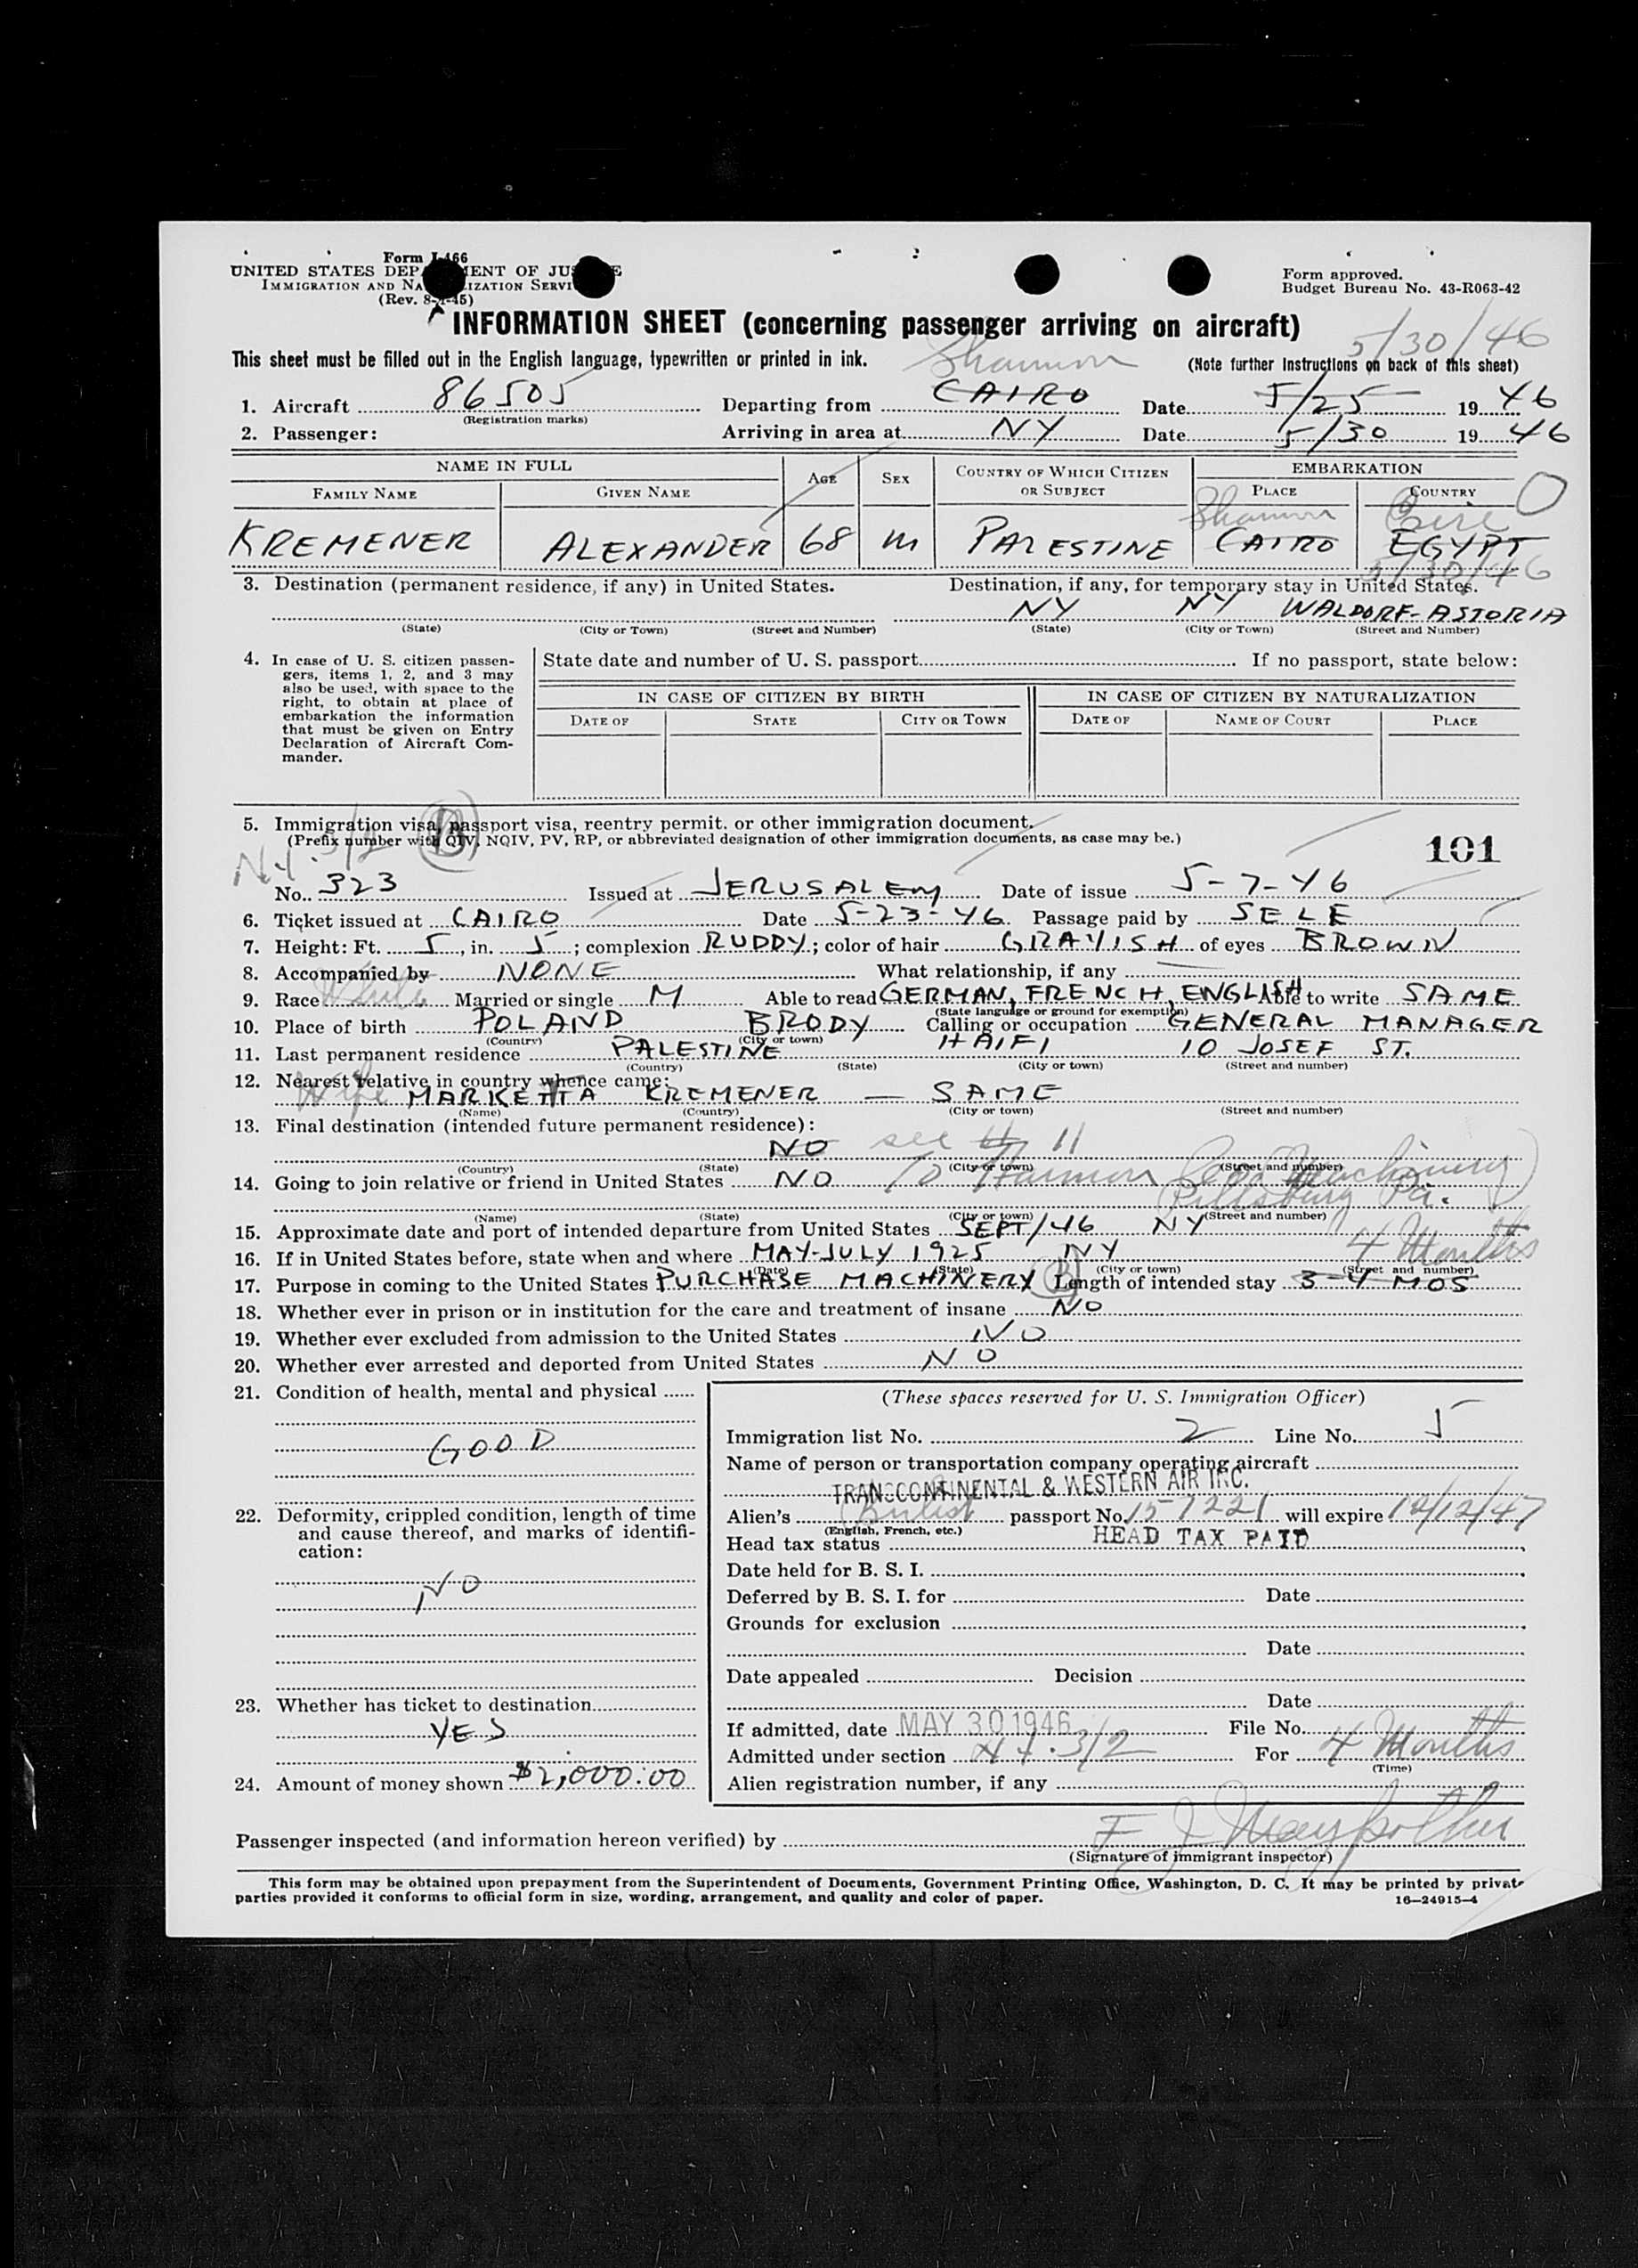 Form I-466
UNITED STATES DEPARTMENT OF JUSTICE
IMMIGRATION AND NATURALIZATION SERVICE
(Rev. 8-1-45)
Form approved.
Budget Bureau No. 43-R063-42
INFORMATION SHEET (concerning passenger arriving on aircraft)
5/30/46
This sheet must be filled out in the English language, typewritten or printed in ink. Shannon (Note further instructions on back of this sheet)
1. Aircraft 86505 Departing from CAIRO Date 5/25 1946
(Registration marks)
2. Passenger: Arriving in area at NY Date 5/30 1946
NAME IN FULL AGE SEX COUNTRY OF WHICH CITIZEN OR SUBJECT EMBARKATION
FAMILY NAME GIVEN NAME PLACE COUNTRY
Shannon Eire
KREMENER ALEXANDER 68 M PALESTINE CAIRO EGYPT
5/30/46
3. Destination (permanent residence, if any) in United States. Destination, if any, for temporary stay in United States.
NY NY WALDORF-ASTORIA
(State) (City or Town) (Street and Number) (State) (City or Town) (Street and Number)
4. In case of U. S. citizen passengers, items 1, 2, and 3 may also be used, with space to the right, to obtain at place of embarkation the information that must be given on Entry Declaration of Aircraft Commander.
State date and number of U. S. passport If no passport, state below:
IN CASE OF CITIZEN BY BIRTH IN CASE OF CITIZEN BY NATURALIZATION
DATE OF STATE CITY OR TOWN DATE OF NAME OF COURT PLACE
5. Immigration visa, passport visa, reentry permit. or other immigration document.
(Prefix number with QIV, NQIV, PV, RP, or abbreviated designation of other immigration documents, as case may be.)
101
3/2 (B)
No. 323 Issued at JERUSALEM Date of issue 5-7-46
6. Ticket issued at CAIRO Date 5-23-46 Passage paid by SELF
7. Height: Ft. 5, in. 5; complexion RUDDY; color of hair GRAYISH of eyes BROWN
8. Accompanied by NONE What relationship, if any —
9. Race White Married or single M Able to read GERMAN, FRENCH, ENGLISH Able to write SAME
(State language or ground for exemption)
10. Place of birth POLAND BRODY Calling or occupation GENERAL MANAGER
(Country) (City or town)
11. Last permanent residence PALESTINE HAIFI 10 JOSEF ST.
(Country) (State) (City or town) (Street and number)
12. Nearest relative in country whence came:
Wife MARKETTA KREMENER — SAME
(Name) (Country) (City or town) (Street and number)
13. Final destination (intended future permanent residence):
NO see # 11
(Country) (State) (City or town) (Street and number)
14. Going to join relative or friend in United States NO To Machinery
Pa.
(Name) (State) (City or town) (Street and number)
15. Approximate date and port of intended departure from United States SEPT/46 NY
16. If in United States before, state when and where MAY-JULY 1925 NY 4 Months
(Date) (State) (City or town) (Street and number)
17. Purpose in coming to the United States PURCHASE MACHINERY (B) Length of intended stay 3-4 MOS
18. Whether ever in prison or in institution for the care and treatment of insane NO
19. Whether ever excluded from admission to the United States NO
20. Whether ever arrested and deported from United States NO
21. Condition of health, mental and physical
GOOD
22. Deformity, crippled condition, length of time and cause thereof, and marks of identification:
NO
23. Whether has ticket to destination
YES
24. Amount of money shown $2,000.00
(These spaces reserved for U. S. Immigration Officer)
Immigration list No. 2 Line No. 5
Name of person or transportation company operating aircraft
TRANSCONTINENTAL & WESTERN AIR INC.
Alien's British passport No. 157221 will expire 12/12/47
(English, French, etc.)
Head tax status HEAD TAX PAID
Date held for B. S. I.
Deferred by B. S. I. for Date
Grounds for exclusion
Date
Date appealed Decision
Date
If admitted, date MAY 30 1946 File No.
Admitted under section 3/2 For 4 Months
(Time)
Alien registration number, if any
Passenger inspected (and information hereon verified) by
(Signature of immigrant inspector)
This form may be obtained upon prepayment from the Superintendent of Documents, Government Printing Office, Washington, D. C. It may be printed by private
parties provided it conforms to official form in size, wording, arrangement, and quality and color of paper.
16—24915-4